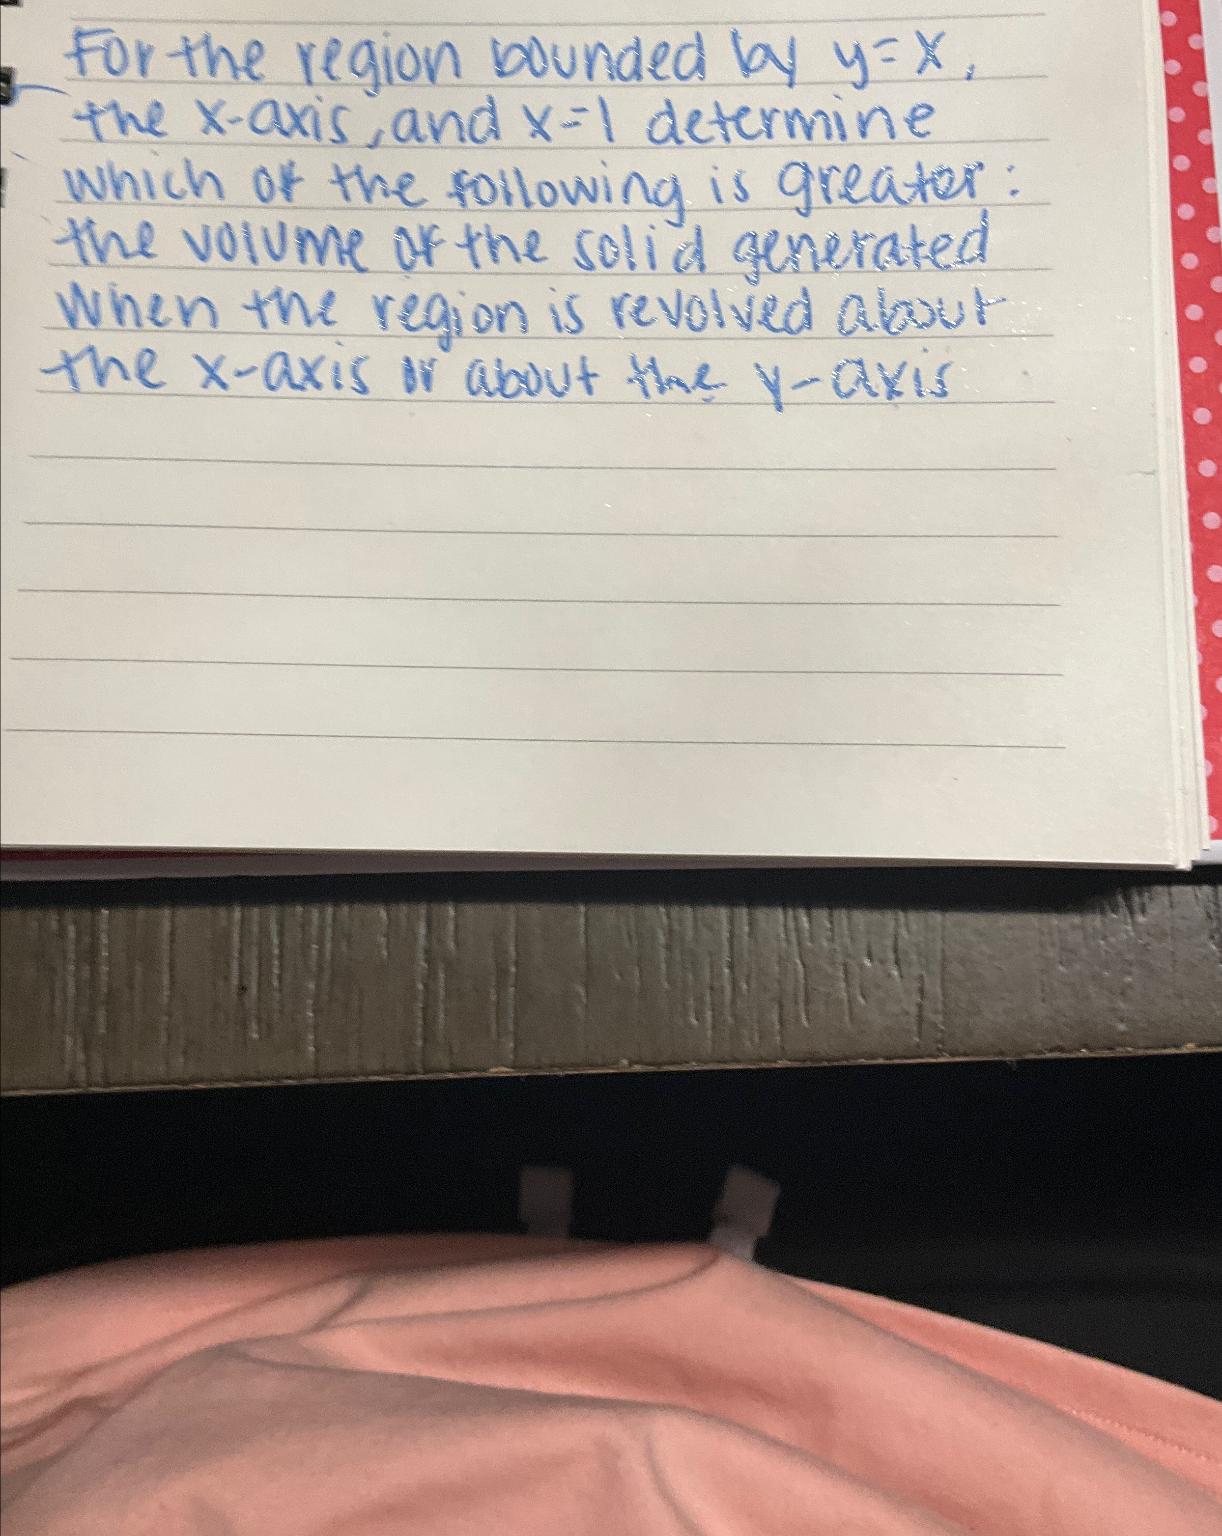 For the region bounded by y=x,
the x-axis, and x=1 determine
which of the following is greater:
the volume of the solid generated
when the region is revolved about
the x-axis or about the y-axis